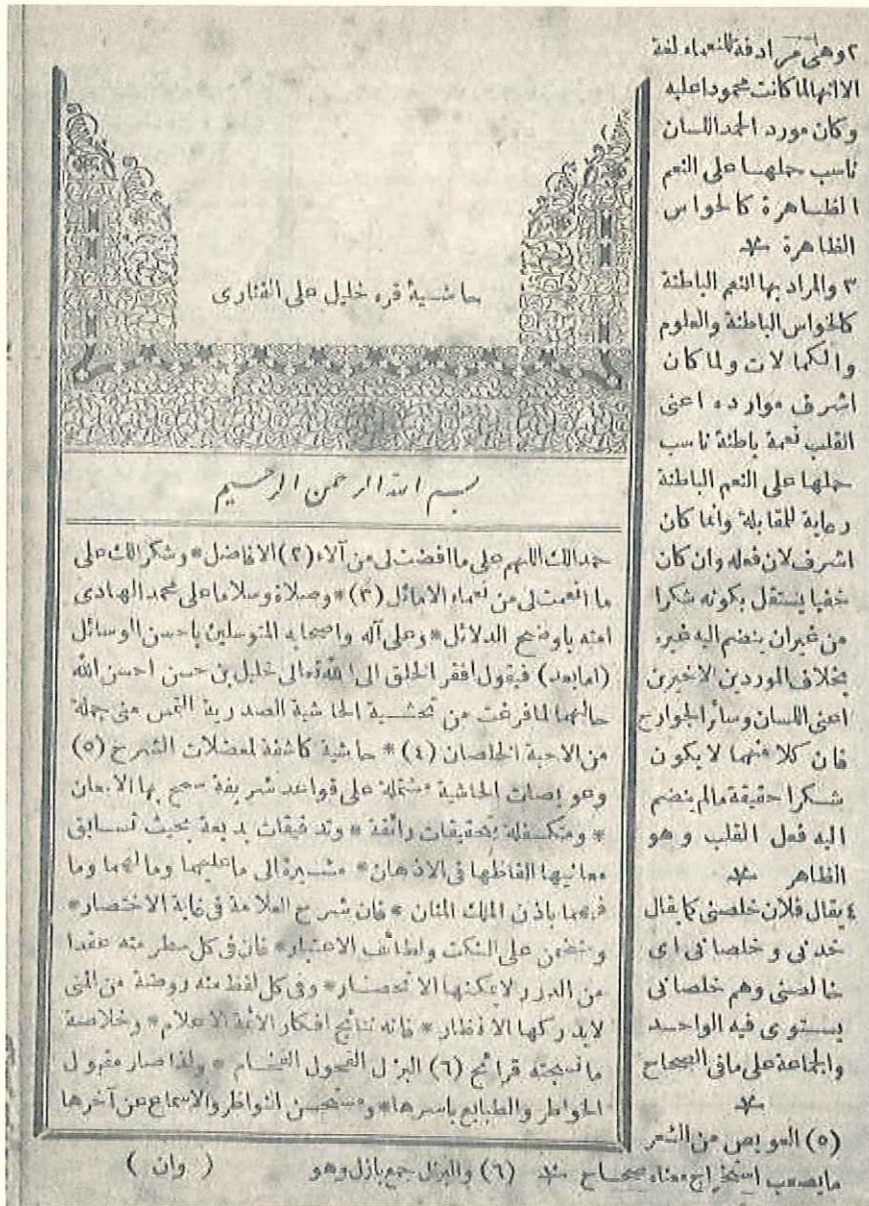 حاشية قره خليل على الفنارى
بسم الله الرحمن الرحيم
حمدا لك اللهم على ما افضت لى من آلاء (٢) الافاضل * وشكرا لك على
ما انعمت لى من نعماء الاماثل (٣) * وصلاة وسلاما على محمد الهادى
امته باوضح الدلائل * وعلى آله واصحابه المتوسلين باحسن الوسائل
(اما بعد) فيقول افقر الخلق الى الله تعالى خليل بن حسن احسن الله
حالهما لما فرغت من تحشية الحاشية الصدرية التمس منى جملة
من الاحبة الخلصان (٤) * حاشية كاشفة لمعضلات الشرح (٥)
وعويصات الحاشية مشتملة على قواعد شريفة سمح بها الامعان
* ومتكفلة بتحقيقات رائقة * وتدقيقات بديعة بحيث تسابق
معانيها الفاظها فى الاذهان * مشيرة الى ما عليهما وما لهما وما
فيهما باذن الملك المنان * فان شرح العلامة فى غاية الاختصار *
ومتضمن على النكت ولطائف الاعتبار * فان فى كل سطر منه عقدا
من الدرر لا يمكنها الانحصار * وفى كل لفظ منه روضة من المنى
لا يدركها الانظار * فانه نتائج افكار الائمة الاعلام * وخلاصة
ما نسجته قرائح (٦) البزل الفحول الفخام * ولذا صار مقبول
الخواطر والطبايع باسرها * ومستحسن النواظر والاسماع عن آخرها
٢ وهى مرادفة للنعماء لغة
الا انها لما كانت محمودا عليه
وكان مورد الحمد اللسان
ناسب حملها على النعم
الظاهرة كالحواس
الظاهرة
٣ والمراد بها النعم الباطنة
كالحواس الباطنة والعلوم
والكمالات ولما كان
اشرف موارده اعنى
القلب نعمة باطنة ناسب
حملها على النعم الباطنة
رعاية للمقابلة وانما كان
اشرف لان فعله وان كان
خفيا يستقل بكونه شكرا
من غير ان ينضم اليه غيره
بخلاف الموردين الاخيرين
اعنى اللسان وسائر الجوارح
فان كلا منهما لا يكون
شكرا حقيقة مالم ينضم
اليه فعل القلب وهو
الظاهر
٤ يقال فلان خلصنى كما يقال
خدنى وخلصانى اى
خالصنى وهم خلصانى
يستوى فيه الواحد
والجماعة على مافى الصحاح
(٥) العويص من الشعر
ما يصعب استخراج معناه صحاح (٦) والبزل جمع بازل وهو
( وان )